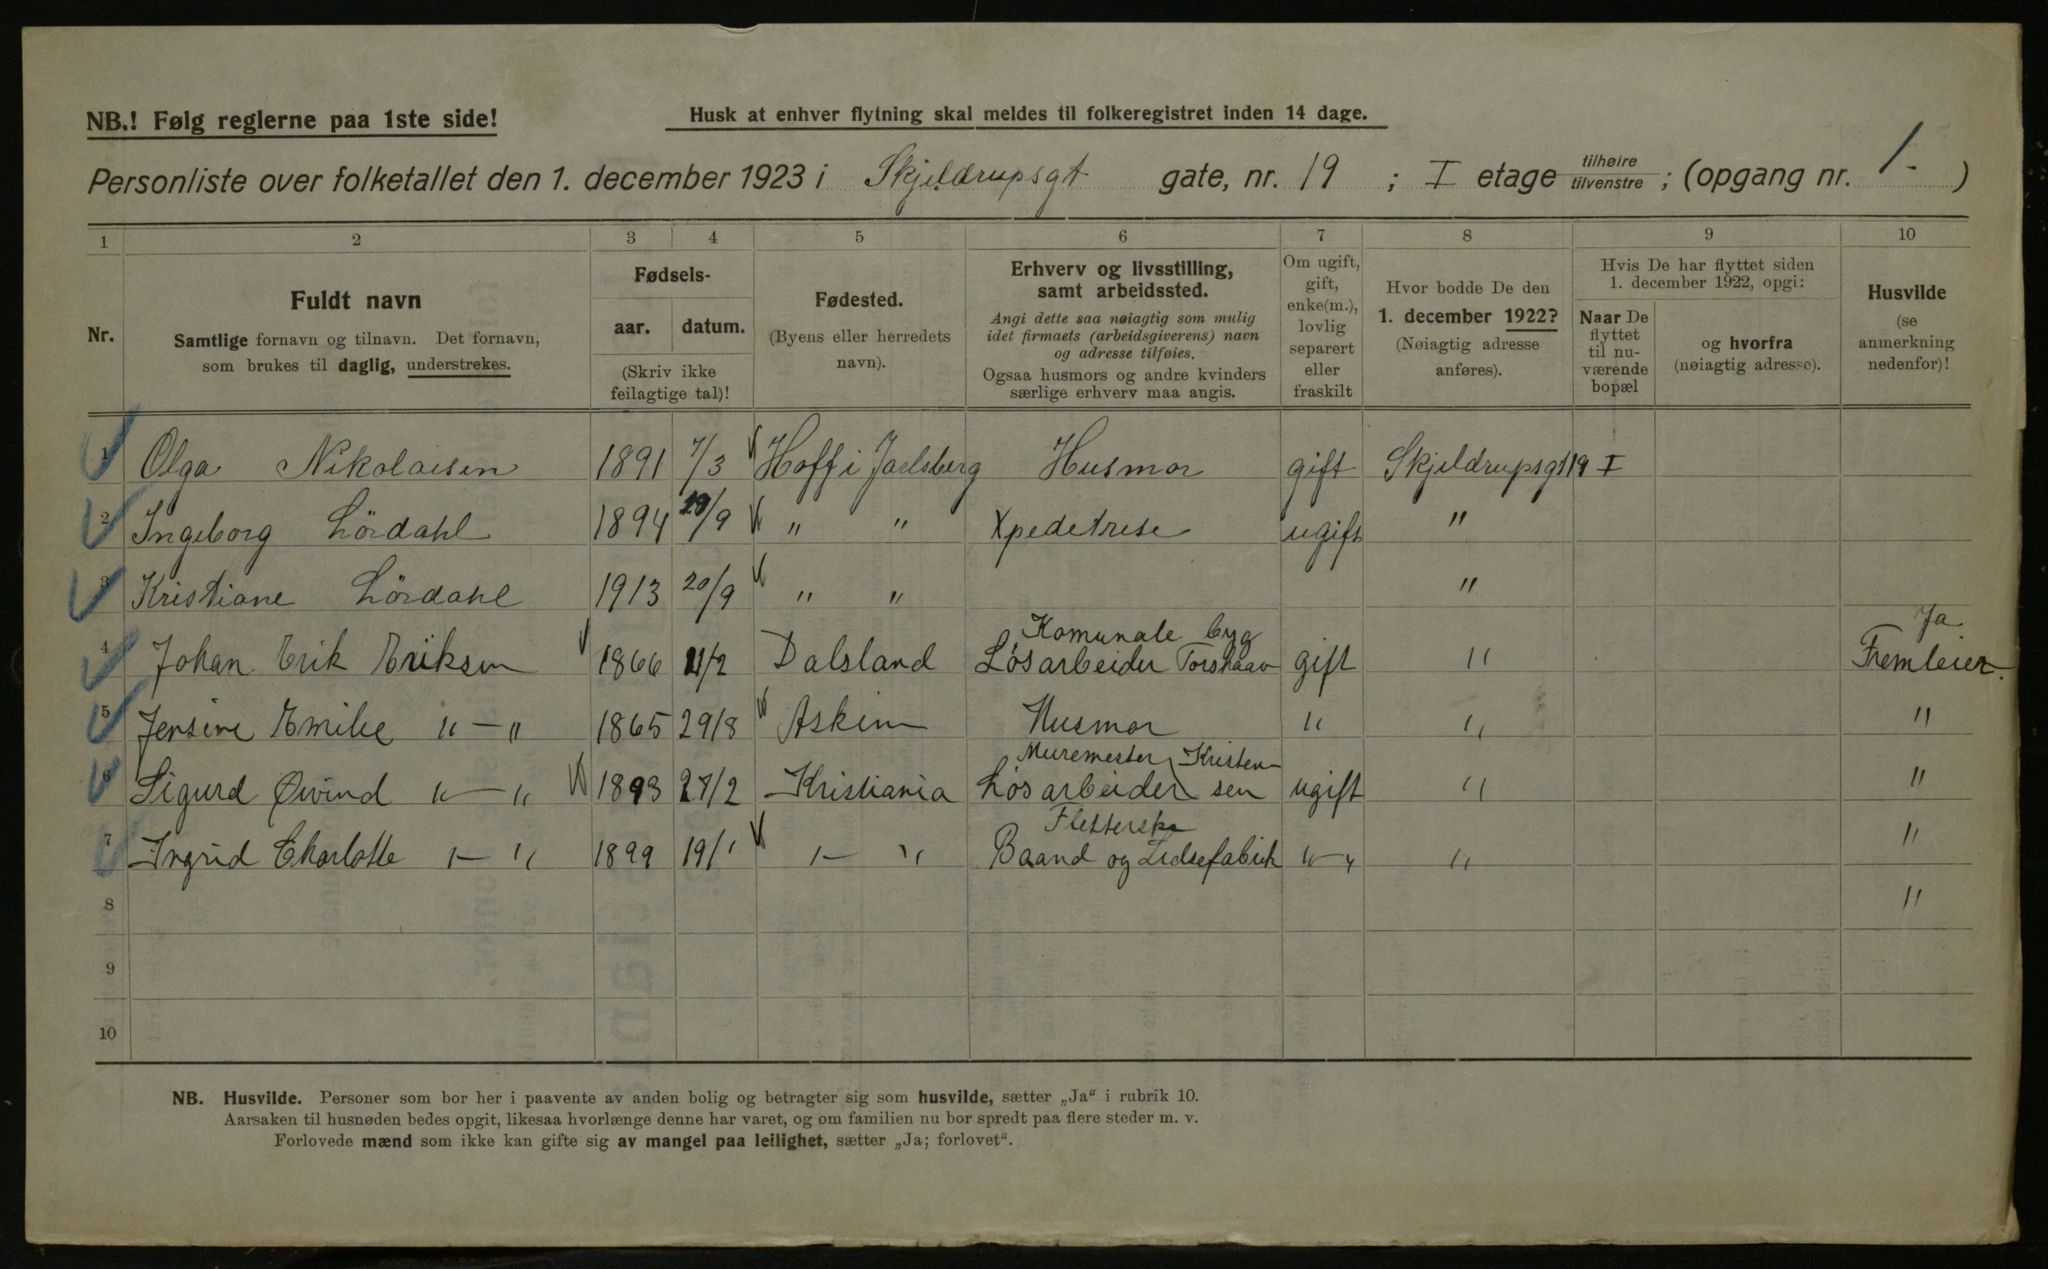 NB.! Følg reglerne paa 1ste side!
Husk at enhver flytning skal meldes til folkeregistret inden 14 dage.
Personliste over folketallet den 1. december 1923 i Skjeldrupsgt gate, nr. 19 ; I etage tilhøire tilvenstre ; (opgang nr. 1. )
1 2 3 4 5 6 7 8 9 10
Nr.
Fuldt navn
Samtlige fornavn og tilnavn. Det fornavn,
som brukes til daglig, understrekes.
Fødsels-
aar. datum.
(Skriv ikke
feilagtige tal)!
Fødested.
(Byens eller herredets
navn).
Erhverv og livsstilling,
samt arbeidssted.
Angi dette saa nøiagtig som mulig
idet firmaets (arbeidsgiverens) navn
og adresse tilføies.
Ogsaa husmors og andre kvinders
særlige erhverv maa angis.
Om ugift,
gift,
enke(m.),
lovlig
separert
eller
fraskilt
Hvor bodde De den
1. december 1922?
(Nøiagtig adresse
anføres).
Hvis De har flyttet siden
1. december 1922, opgi:
Naar De
flyttet
til nu-
værende
bopæl
og hvorfra
(nøiagtig adresse).
Husvilde
(se
anmerkning
nedenfor)!
1 Olga Nikolaisen 1891 7/3 Hoff i Jarlsberg Husmor gift Skjeldrupsgt 19 I
2 Ingeborg Lördahl 1894 /9 " " Xpedetrise ugift "
3 Kristiane Lördahl 1913 20/9 " " "
Komunale byg Ja
4 Johan Erik Eriksen 1866 /2 Dalsland Løsarbeider Torshaav gift " Fremleier.
5 Jensine Emilie " — " 1865 29/8 Askim Husmor " " "
Muremester Kristen-
6 Sigurd Øivind " — " 1893 27/2 Kristiania Løsarbeider sen ugift " "
Fletterske
7 Ingrid Charlotte " — " 1899 19/1 " — " Baand og Lidsefabrik " — " " "
8 "
9
10
NB. Husvilde. Personer som bor her i paavente av anden bolig og betragter sig som husvilde, sætter „Ja“ i rubrik 10.
Aarsaken til husnøden bedes opgit, likesaa hvorlænge denne har varet, og om familien nu bor spredt paa flere steder m. v.
Forlovede mænd som ikke kan gifte sig av mangel paa leilighet, sætter „Ja; forlovet“.